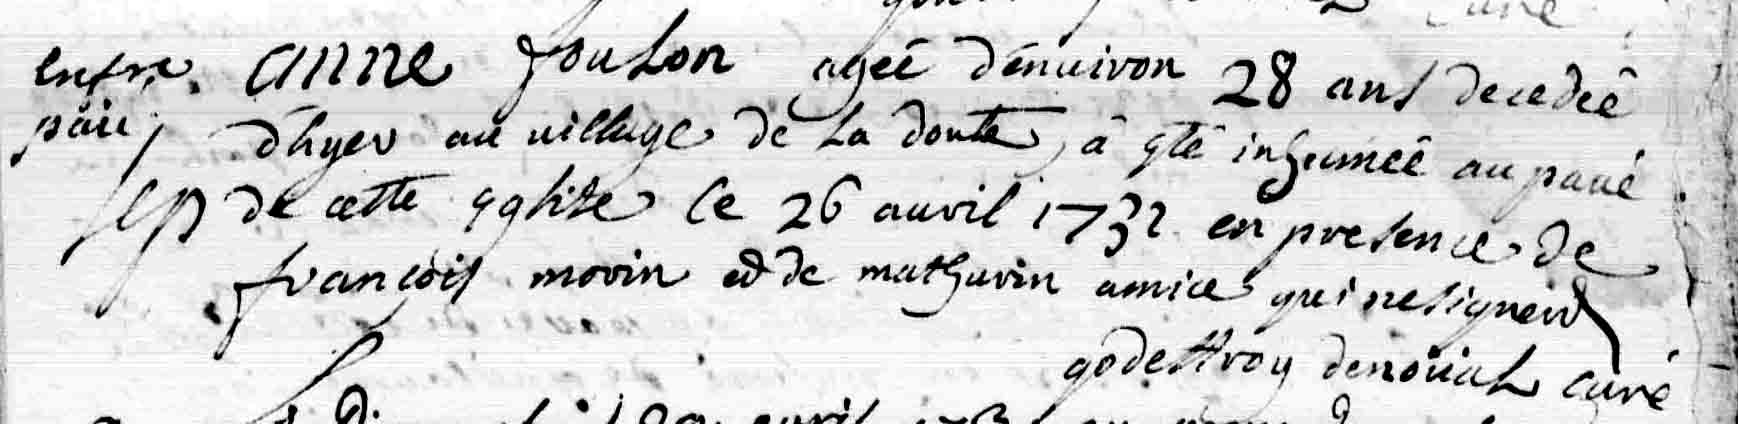 anne foulon ageê d'enuiron 28 ans decedeê
d'hyer au village de la donte, â êtê inhumeê au paué
de cette yglise le 26 auril 1732 en presence de
françois morin et de mathurin amice qui ne signent
godeffroy denoüal curé